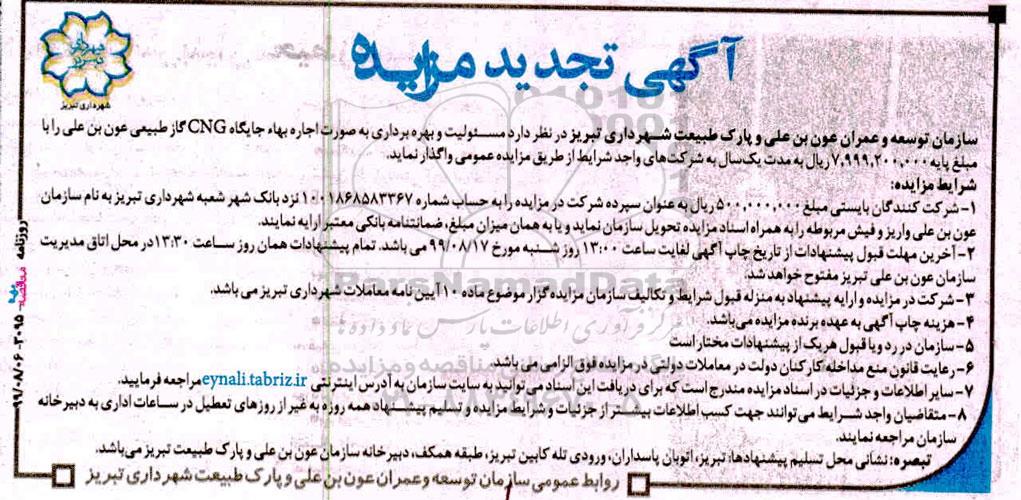 آگهی تجدید مزایده
شهرداری تبریز
سازمان توسعه و عمران عون بن علی و پارک طبیعت شهرداری تبریز در نظر دارد مسئولیت و بهره برداری به صورت اجاره بهاء جایگاه CNG گاز طبیعی عون بن علی را با
مبلغ پایه ۷,۹۹۹,۲۰۰,۰۰۰ ریال به مدت یک‌سال به شرکت‌های واجد شرایط از طریق مزایده عمومی واگذار نماید.
شرایط مزایده:
۱- شرکت کنندگان بایستی مبلغ ۵۰۰,۰۰۰,۰۰۰ ریال به عنوان سپرده شرکت در مزایده را به حساب شماره ۱۰۰۱۸۶۸۵۸۳۳۶۷ نزد بانک شهر شعبه شهرداری تبریز به نام سازمان
عون بن علی واریز و فیش مربوطه را به همراه اسناد مزایده تحویل سازمان نماید و یا به همان میزان مبلغ، ضمانتنامه بانکی معتبر ارایه نمایند.
۲- آخرین مهلت قبول پیشنهادات از تاریخ چاپ آگهی لغایت ساعت ۱۳:۰۰ روز شنبه مورخ ۹۹/۰۸/۱۷ می باشد. تمام پیشنهادات همان روز ساعت ۱۳:۳۰ در محل اتاق مدیریت
سازمان عون بن علی تبریز مفتوح خواهد شد.
۳- شرکت در مزایده و ارایه پیشنهاد به منزله قبول شرایط و تکالیف سازمان مزایده گزار موضوع ماده ۱۰ آیین نامه معاملات شهرداری تبریز می باشد.
۴- هزینه چاپ آگهی به عهده برنده مزایده می‌باشد.
۵- سازمان در رد و یا قبول هریک از پیشنهادات مختار است
۶- رعایت قانون منع مداخله کارکنان دولت در معاملات دولتی در مزایده فوق الزامی می باشد
۷- سایر اطلاعات و جزئیات در اسناد مزایده مندرج است که برای دریافت این اسناد می توانید به سایت سازمان به آدرس اینترنتی eynali.tabriz.ir مراجعه فرمایید.
۸- متقاضیان واجد شرایط می‌توانند جهت کسب اطلاعات بیشتر از جزئیات و شرایط مزایده و تسلیم پیشنهاد همه روزه به غیر از روزهای تعطیل در ساعات اداری به دبیرخانه
سازمان مراجعه نمایند.
تبصره: نشانی محل تسلیم پیشنهادها: تبریز، اتوبان پاسداران، ورودی تله کابین تبریز، طبقه همکف، دبیرخانه سازمان عون بن علی و پارک طبیعت تبریز می‌باشد.
روابط عمومی سازمان توسعه و عمران عون بن علی و پارک طبیعت شهرداری تبریز
روزنامه مناقصه ۳۰۹۵ - ۹۹/۰۸/۰۶
ParsNamadData